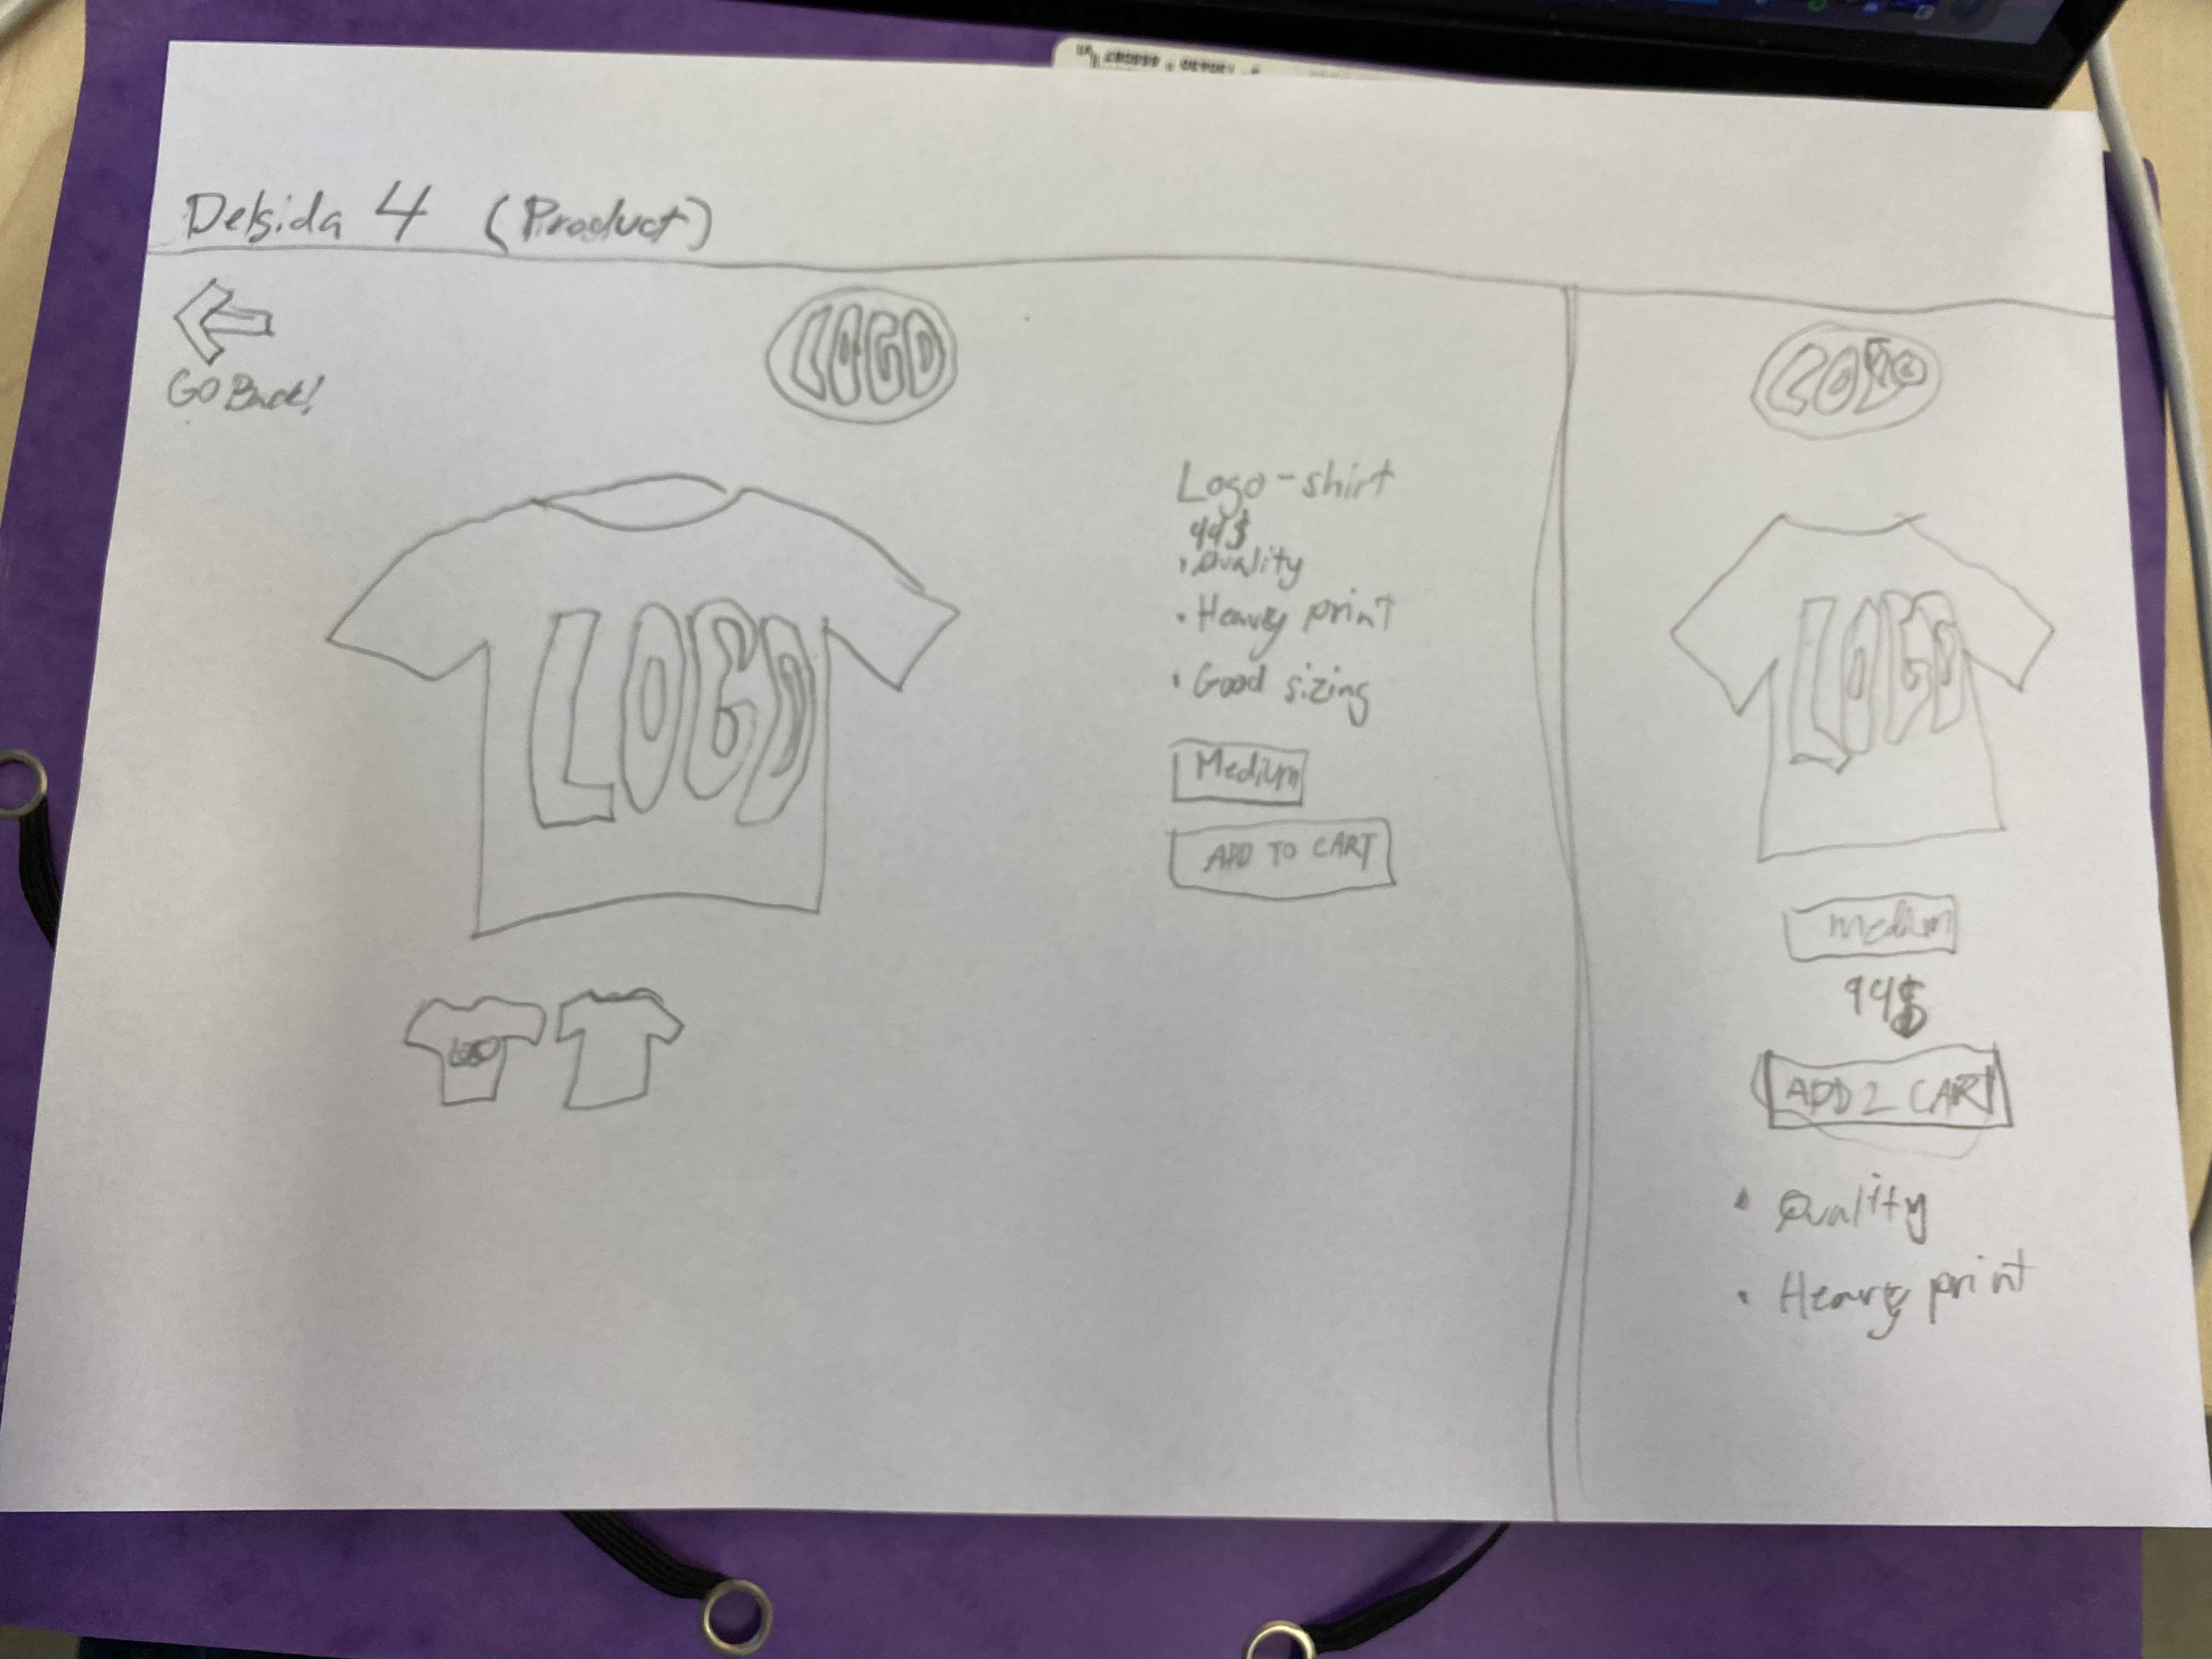 Delsida 4 (Product)
GO Back!
LOGO
LOGO
LOGO
Logo-shirt
44$
• Quality
• Heavey print
• Good sizing
Medium
ADD TO CART
LOGO
LOGO
Medium
44$
ADD 2 CART
• Quality
• Heavey print